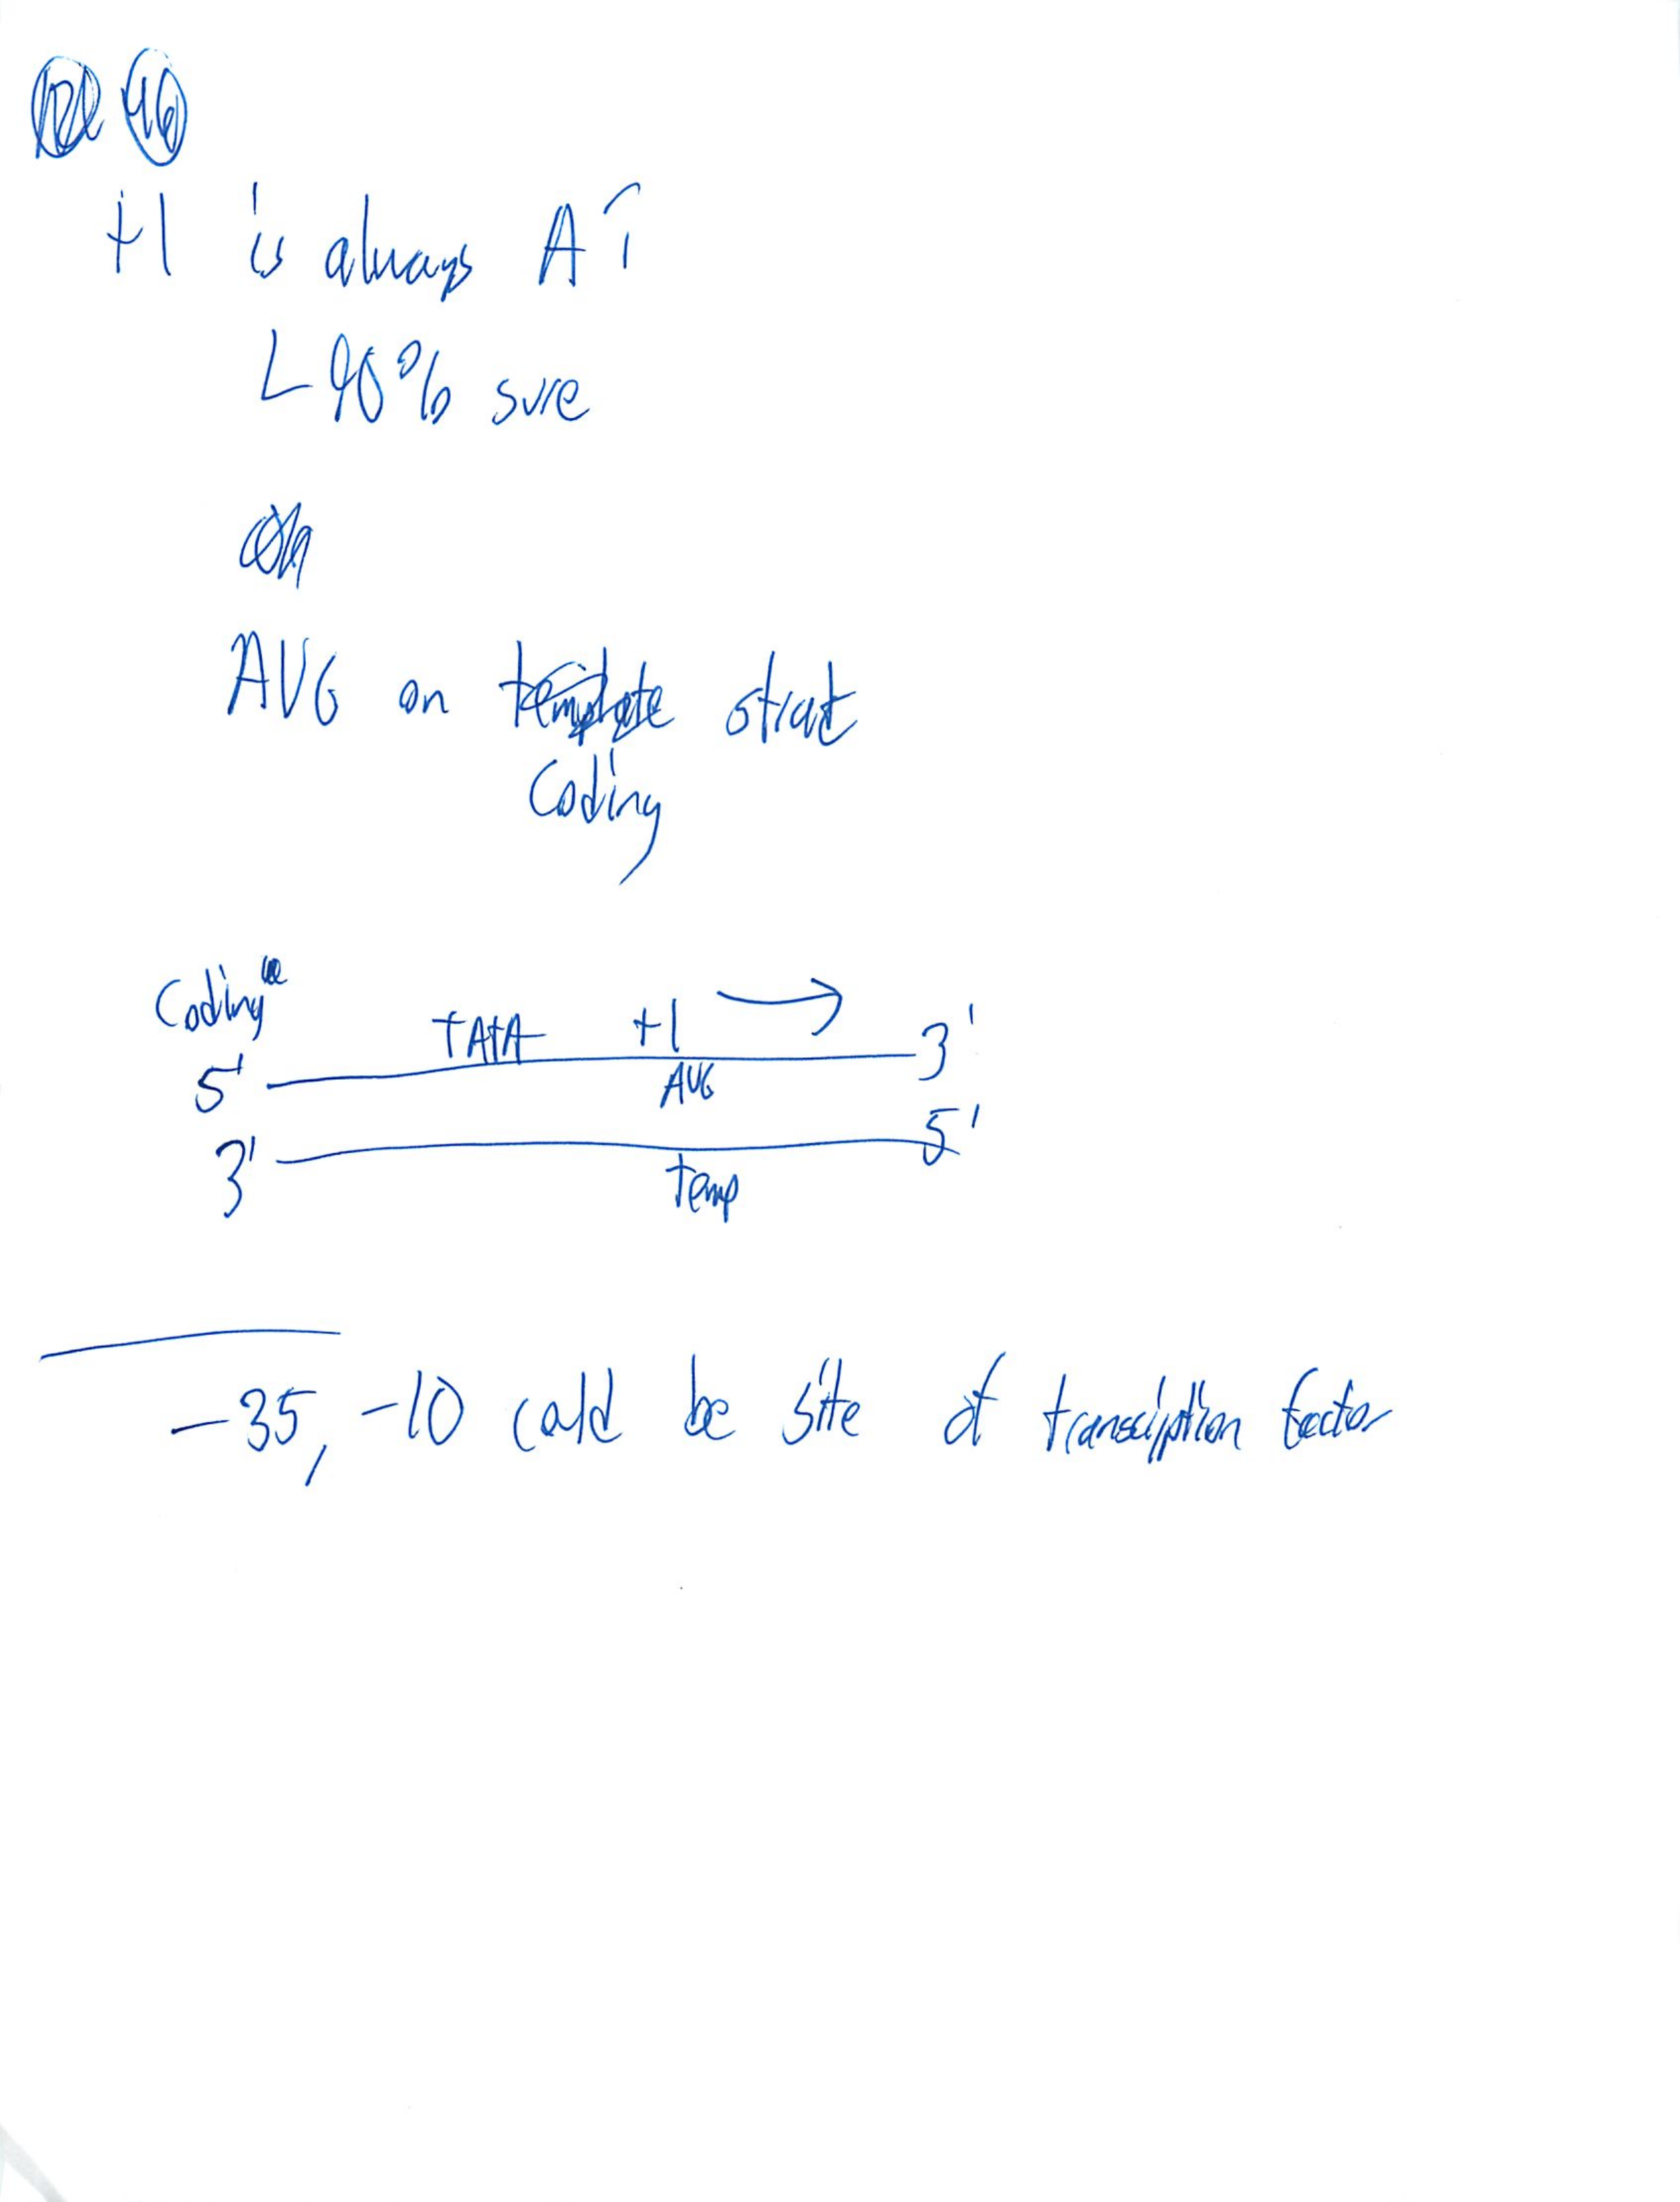 46
+1 is always A?
90% sure
AUG on template strat
Coding
Coding
TATA +1
5' 3'
AUG
3' 5'
Temp
-35, -10 could be site of transcription factor